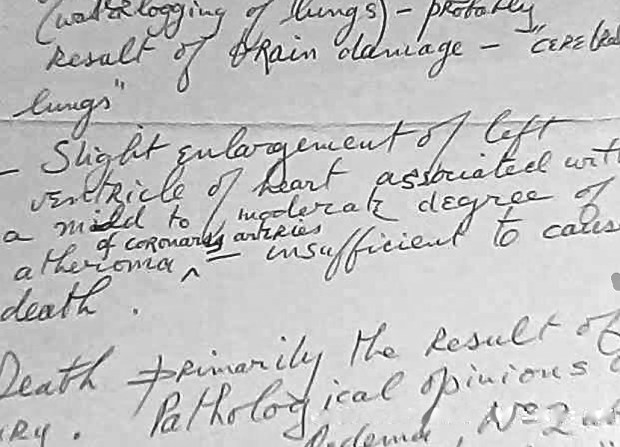 (waterlogging of lungs) – probably
Result of brain damage – "cerebral
lungs"
– Slight enlargement of left
ventricle of heart associated with
a mild to moderate degree of
of coronary arteries
atheroma ^ – insufficient to cause
death.
Death primarily the result of
Pathological opinions
RY.
Nº 2